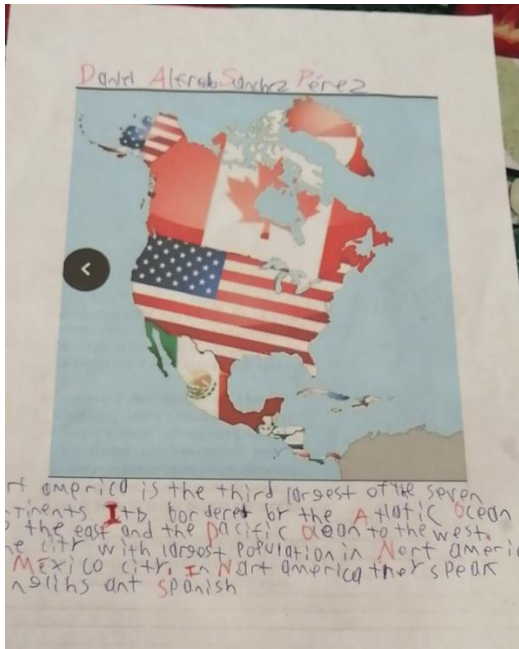 Daniel Alfredo Sánchez Pérez
rt america is the third largest of the seven
tinents Itb bordered br the Atlatic Ocean
the east and the Pacific Ocean to the west.
he citr with largost Population in Nort americ
Mexico citr. In Nort america ther speak
nglihs ant Spanish